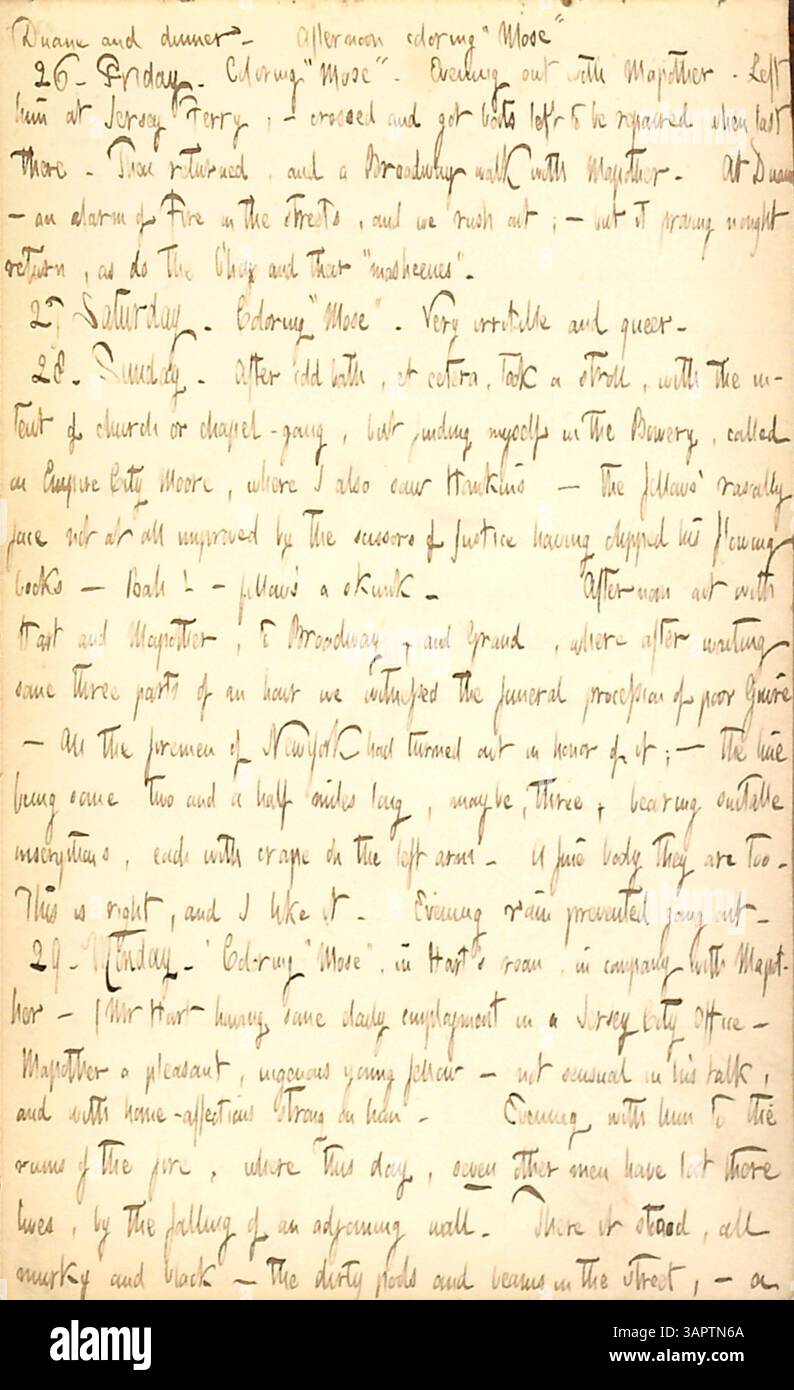 Duane and dinner. Afternoon coloring "Mose"
26. Friday. Coloring "Mose". Evening out with Mapother. Left
him at Jersey Ferry; — crossed and got boots left to be repaired when last
there. Then returned, and a Broadway walk with Mapother. At Duane
— an alarm of Fire in the streets, and we rush out; — but it proving nought
return, as do the B'hoys and their "masheenes".
27 Saturday. Coloring "Mose". Very irritable and queer.
28. Sunday. After cold bath, et cetera, took a stroll, with the in-
tent of church or chapel-going, but finding myself in the Bowery, called
on Empire City Moore, where I also saw Hawkins — the fellows' rascally
face not at all improved by the scissors of Justice having clipped his flowing
locks — Bah! — fellow's a skunk. Afternoon out with
Hart and Mapother, to Broadway, and Grand, where after waiting
some three parts of an hour we witnessed the funeral procession of poor
— All the firemen of New York had turned out in honor of it; — the line
being some two and a half miles long, maybe, three, bearing suitable
inscriptions, each with crape on the left arm. A fine body they are too.
This is right, and I like it. Evening rain prevented going out.
29. Monday. Coloring "Mose", in Hart's room, in company with Mapot-
her — (Mr Hart having some daily employment in a Jersey City Office —
Mapother a pleasant, ingenous young fellow — not sensual in his talk,
and with home-affections strong on him. Evening with him to the
ruins of the fire, where this day, seven other men have lost there
lives, by the falling of an adjoining wall. There it stood, all
murky and black — the dirty pools and beams in the street, — a
alamy
Image ID: 3APTN6A
www.alamy.com